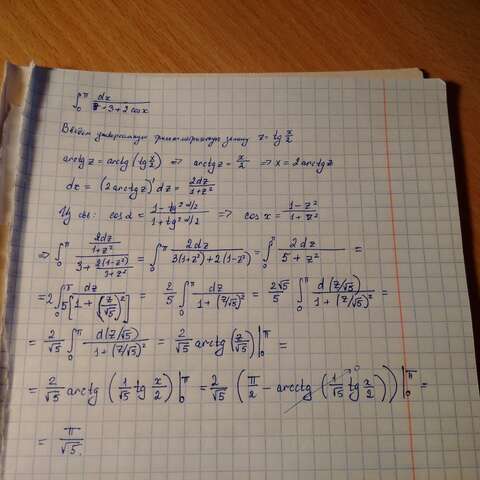 ∫₀^π dx/(3+2cosx)
Введём универсальную тригонометрическую замену z=tg x/2
arctg z = arctg(tg x/2) => arctg z = x/2 => x = 2arctg z
dx = (2arctg z)' dz = 2dz/(1+z²)
cos α = (1-tg² α/2)/(1+tg² α/2) => cos x = (1-z²)/(1+z²)
=> ∫₀^π (2dz/(1+z²))/(3+2(1-z²)/(1+z²)) = ∫₀^π 2dz/(3(1+z²)+2(1-z²)) = ∫₀^π 2dz/(5+z²) =
= 2∫₀^π dz/(5[1+(z/√5)²]) = 2/5 ∫₀^π dz/(1+(z/√5)²) = 2√5/5 ∫₀^π d(z/√5)/(1+(z/√5)²) =
= 2/√5 ∫₀^π d(z/√5)/(1+(z/√5)²) = 2/√5 arctg(z/√5)|₀^π =
= 2/√5 arctg(1/√5 tg x/2)|₀^π = 2/√5 (π/2 - arcctg(1/√5 tg x/2))|₀^π =
= π/√5.